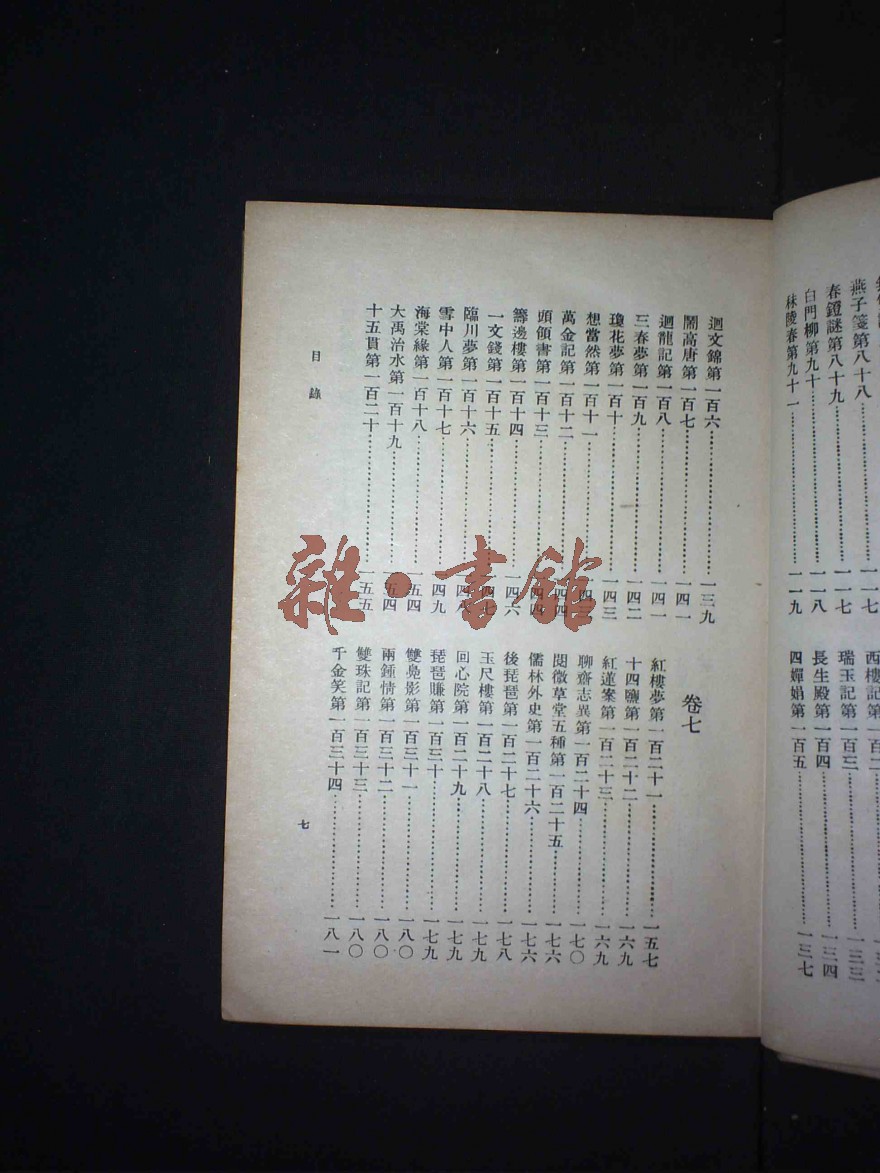 燕子箋第八十八……一一七
春鐙謎第八十九……一一七
白門柳第九十……一一八
秣陵春第九十一……一一九
瑞玉記第一百三……一三三
長生殿第一百四……一三四
四嬋娟第一百五……一三七
迴文錦第一百六……一三九
鬧高唐第一百七……一四一
迴龍記第一百八……一四一
三春夢第一百九……一四二
瓊花夢第一百十……一四三
想當然第一百十一……
萬金記第一百十二……一四四
頭領書第一百十三……一四四
籌邊樓第一百十四……一四六
一文錢第一百十五……一四七
臨川夢第一百十六……一四八
雪中人第一百十七……一四九
海棠緣第一百十八……一五四
大禹治水第一百十九……一五四
十五貫第一百二十……一五五
卷七
紅樓夢第一百二十一……一五七
十四鹽第一百二十二……一六九
紅蓮案第一百二十三……一六九
聊齋志異第一百二十四……一七〇
閱微草堂五種第一百二十五……一七六
儒林外史第一百二十六……一七六
後琵琶第一百二十七……一七八
玉尺樓第一百二十八……一七九
回心院第一百二十九……一七九
琵琶賺第一百三十……一七九
雙鳧影第一百三十一……一八〇
兩鍾情第一百三十二……一八〇
雙珠記第一百三十三……一八〇
千金笑第一百三十四……一八一
目錄
七
雜·書館